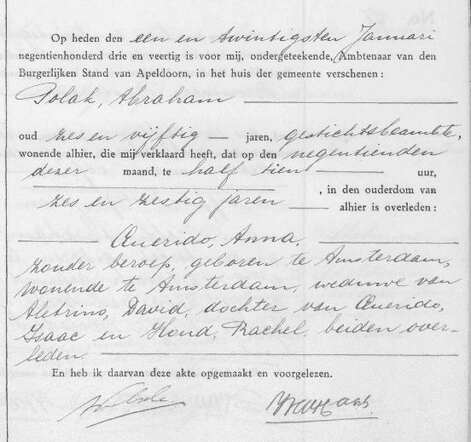 Op heden den een en twintigsten Januari
negentienhonderd drie en veertig is voor mij, ondergeteekende, Ambtenaar van den
Burgerlijken Stand van Apeldoorn, in het huis der gemeente verschenen:
Polak, Abraham
oud zes en vijftig jaren, gestichtsbeambte,
wonende alhier, die mij verklaard heeft, dat op den negentienden
dezer maand, te half tien uur,
, in den ouderdom van
zes en zestig jaren alhier is overleden:
Querido, Anna,
zonder beroep, geboren te Amsterdam,
wonende te Amsterdam, weduwe van
Aletrino, David, dochter van Querido,
Isaac en Hond, Rachel, beiden over-
leden.
En heb ik daarvan deze akte opgemaakt en voorgelezen.